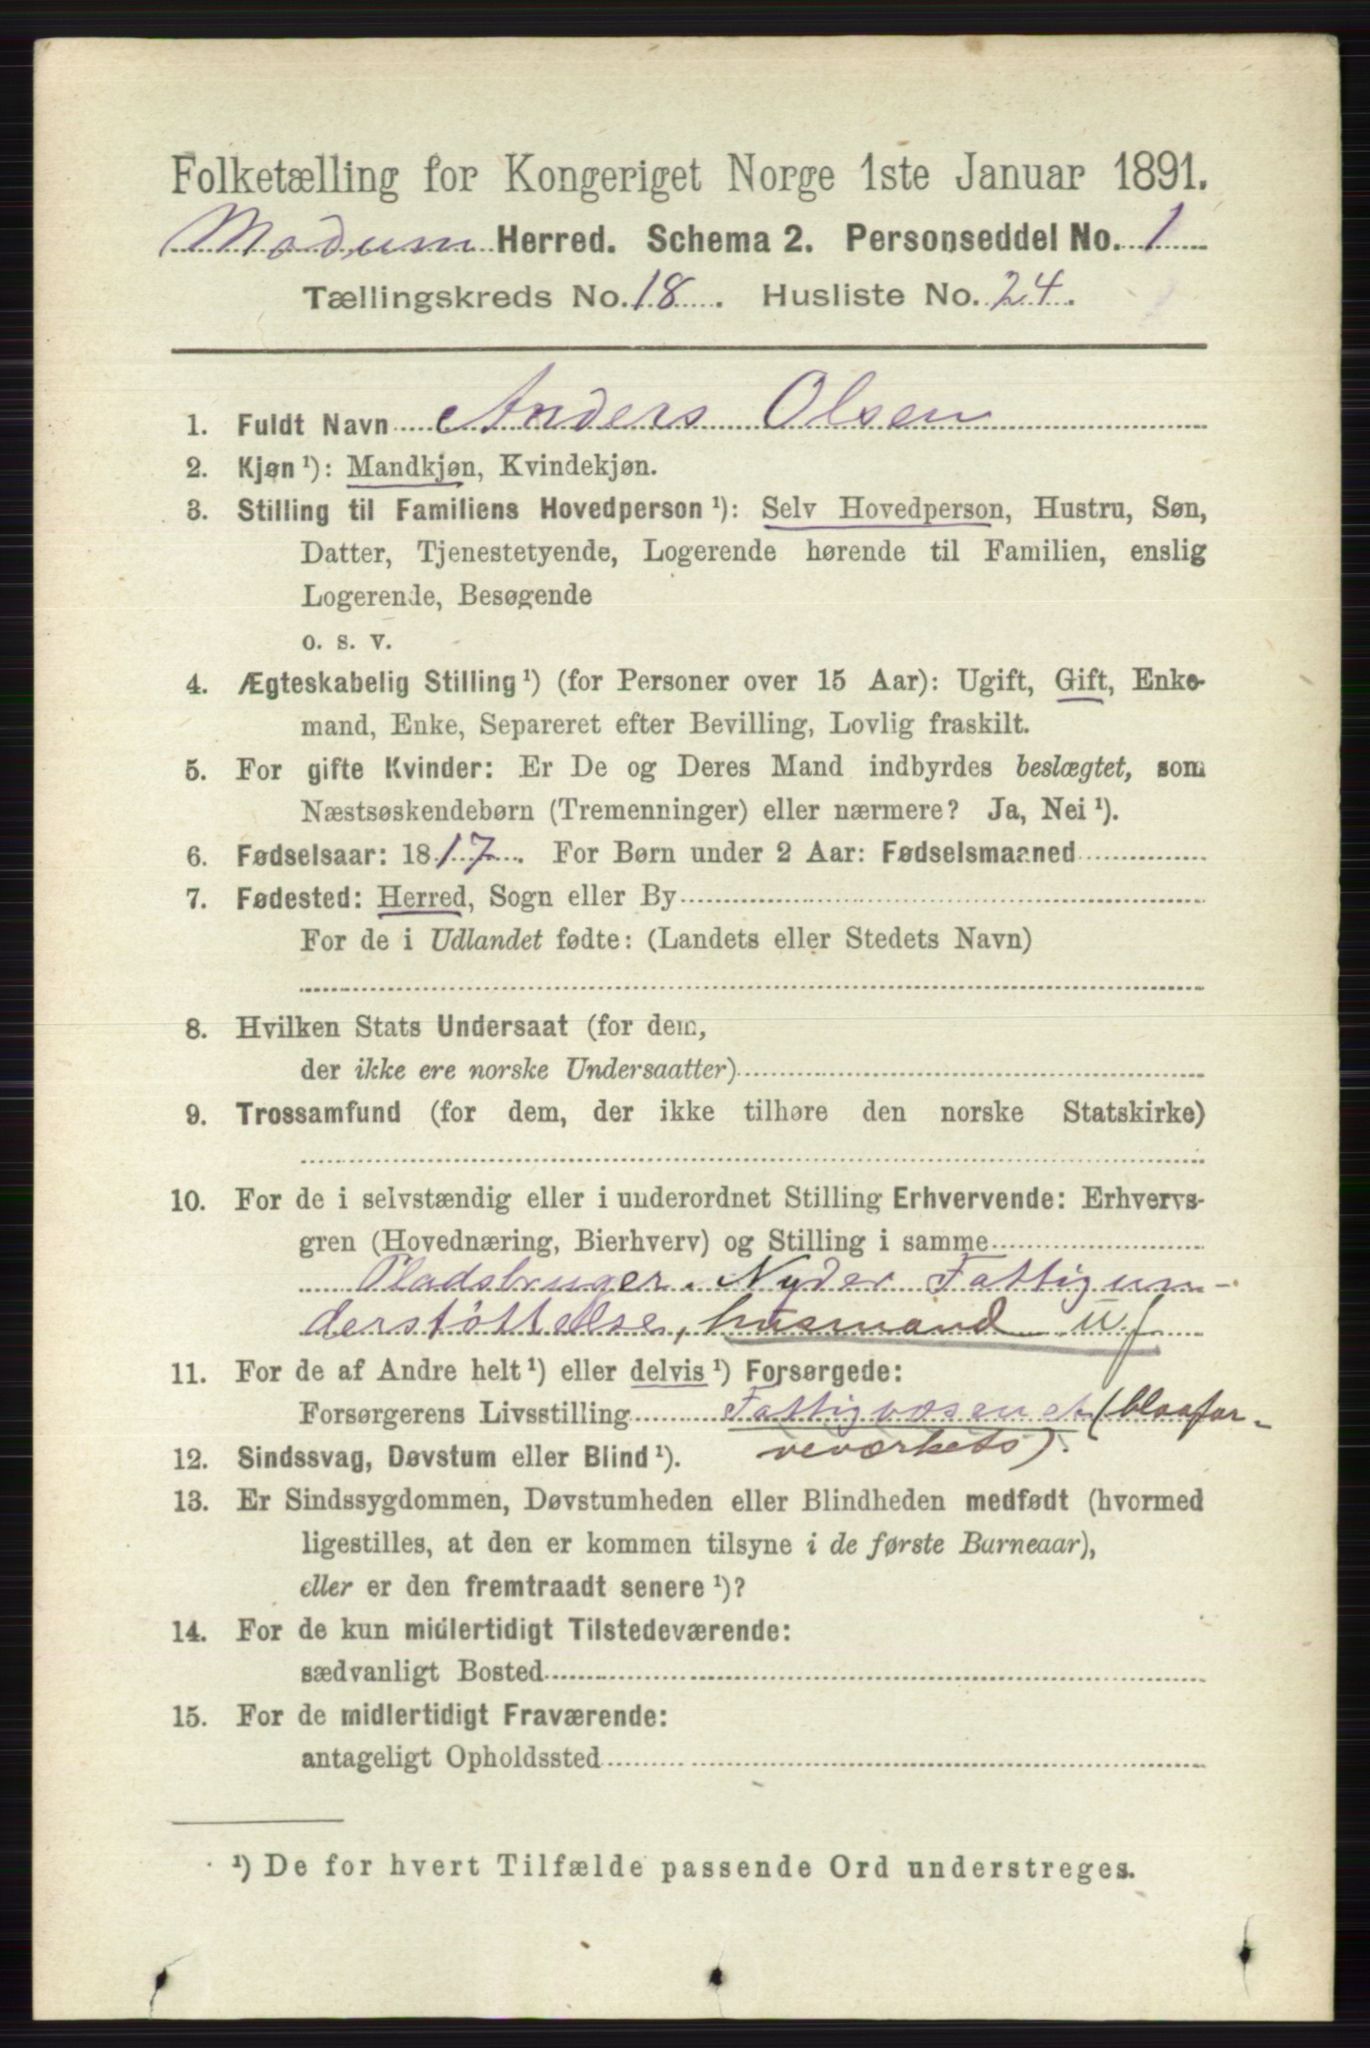 Folketælling for Kongeriget Norge 1ste Januar 1891.
Modum Herred. Schema 2. Personseddel No. 1
Tællingskreds No. 18. Husliste No. 24.
1. Fuldt Navn Anders Olsen
2. Kjøn ¹): Mandkjøn, Kvindekjøn.
3. Stilling til Familiens Hovedperson ¹): Selv Hovedperson, Hustru, Søn,
Datter, Tjenestetyende, Logerende hørende til Familien, enslig
Logerende, Besøgende
o. s. v.
4. Ægteskabelig Stilling ¹) (for Personer over 15 Aar): Ugift, Gift, Enke-
mand, Enke, Separeret efter Bevilling, Lovlig fraskilt.
5. For gifte Kvinder: Er De og Deres Mand indbyrdes beslægtet, som
Næstsøskendebørn (Tremenninger) eller nærmere? Ja, Nei ¹).
6. Fødselsaar: 1817. For Børn under 2 Aar: Fødselsmaaned
7. Fødested: Herred, Sogn eller By
For de i Udlandet fødte: (Landets eller Stedets Navn)
8. Hvilken Stats Undersaat (for dem,
der ikke ere norske Undersaatter)
9. Trossamfund (for dem, der ikke tilhøre den norske Statskirke)
10. For de i selvstændig eller i underordnet Stilling Erhvervende: Erhvervs-
gren (Hovednæring, Bierhverv) og Stilling i samme
Pladsbruger. Nyder Fattigun-
derstøttelse, husmand uf
11. For de af Andre helt ¹) eller delvis ¹) Forsørgede:
Forsørgerens Livsstilling Fattigvæsenet (blaafar-
veværkets).
12. Sindssvag, Døvstum eller Blind ¹).
13. Er Sindssygdommen, Døvstumheden eller Blindheden medfødt (hvormed
ligestilles, at den er kommen tilsyne i de første Barneaar),
eller er den fremtraadt senere ¹)?
14. For de kun midlertidigt Tilstedeværende:
sædvanligt Bosted
15. For de midlertidigt Fraværende:
antageligt Opholdssted
¹) De for hvert Tilfælde passende Ord understreges.